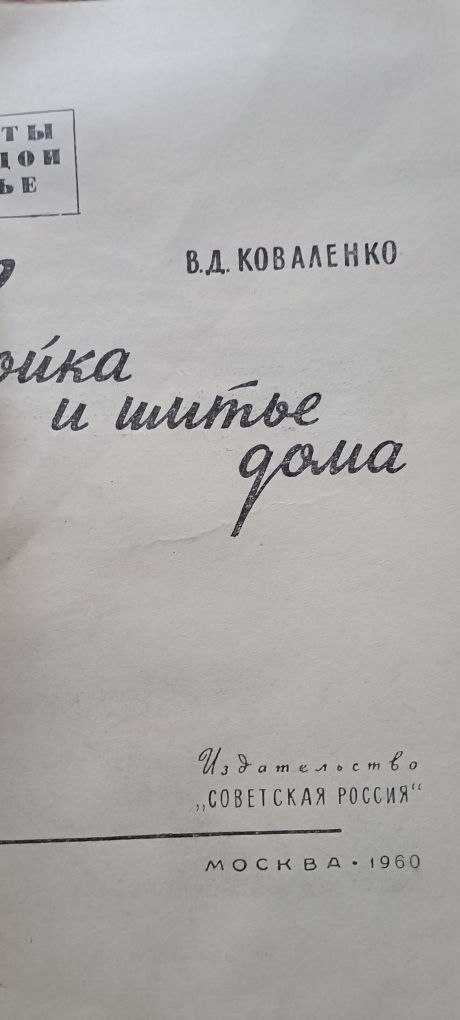 ТЫ
ДОЙ
ЬЕ
В.Д. КОВАЛЕНКО
ойка
и шитье
дома
Издательство
„СОВЕТСКАЯ РОССИЯ“
МОСКВА • 1960